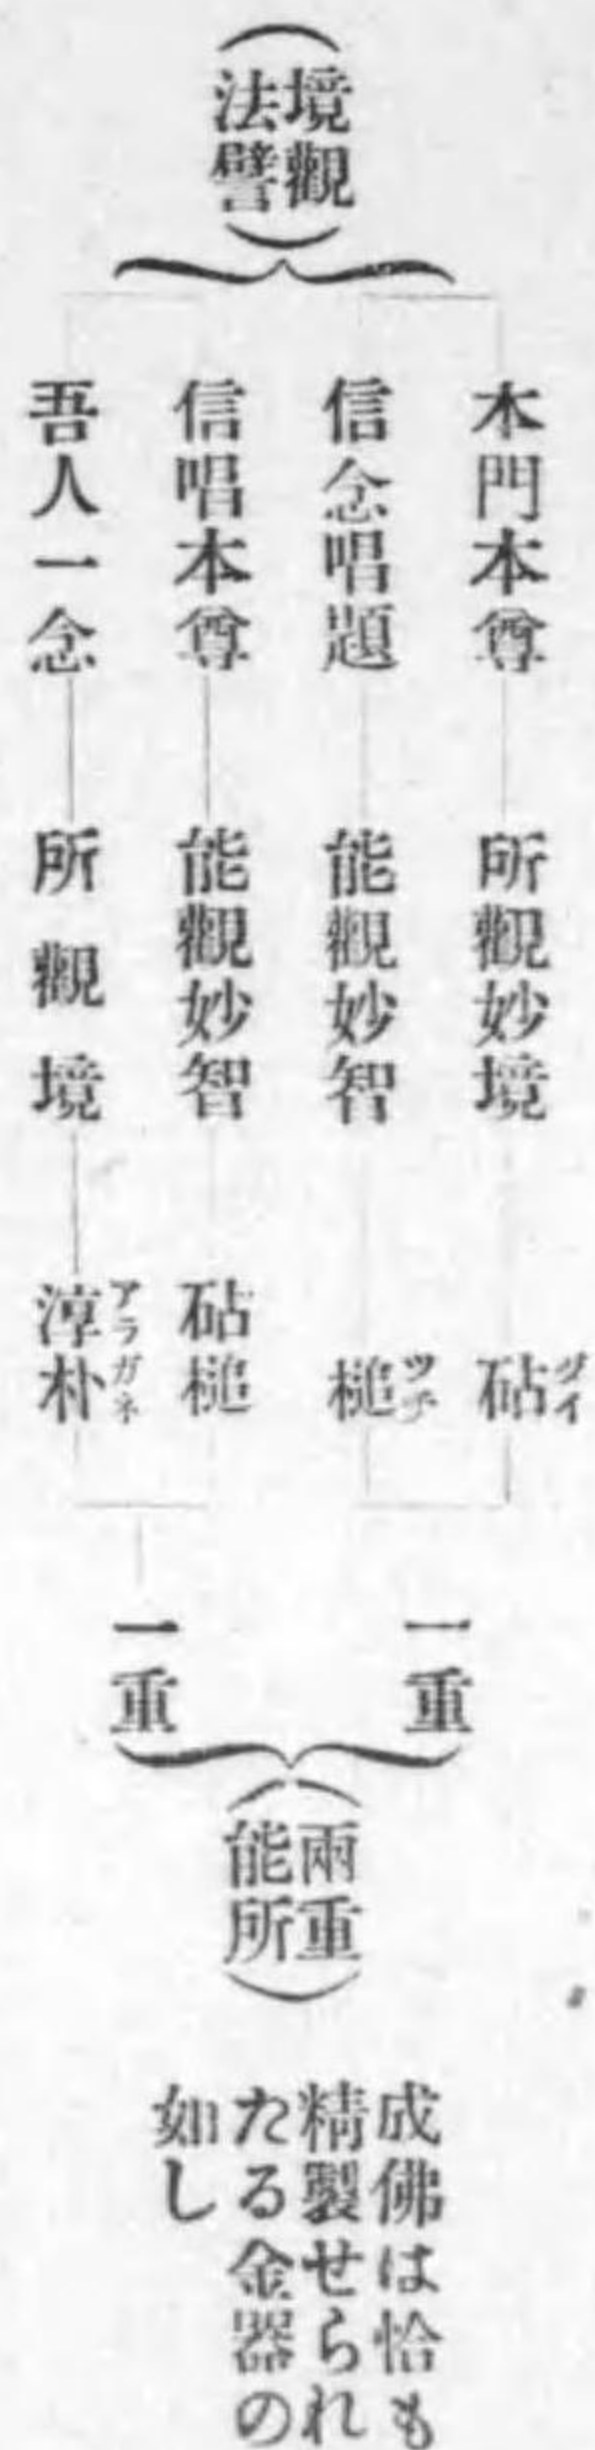 （境觀
法譬）
本門本尊
所觀妙境
砧
信念唱題
能觀妙智
槌
ツチ
信唱本尊
能觀妙智
砧槌
吾人一念
所觀境
淳朴
アラガネ
一重
一重
（兩重
能所）
成佛は恰も
精製せられ
たる金器の
如し